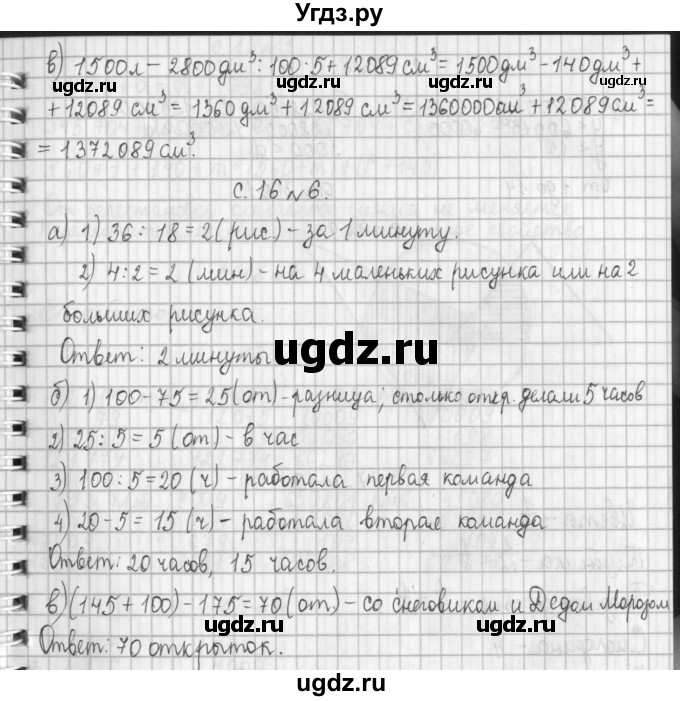 Угдз.ру
в) 1500л - 2800дм³ : 100 · 5 + 12089 см³ = 1500дм³ - 140дм³ +
+ 12089 см³ = 1360 дм³ + 12089 см³ = 1360000см³ + 12089 см³ =
= 1372089 см³.
с. 16 №6.
а) 1) 36 : 18 = 2 (рис) - за 1 минуту.
2) 4 : 2 = 2 (мин) - на 4 маленьких рисунка или на 2
больших рисунка.
Ответ: 2 минуты
б) 1) 100 - 75 = 25 (от) - разница; столько откр. делали 5 часов
2) 25 : 5 = 5 (от) - в час
3) 100 : 5 = 20 (ч) - работала первая команда
4) 20 - 5 = 15 (ч) - работала вторая команда
Ответ: 20 часов, 15 часов.
в) (145 + 100) - 175 = 70 (от.) - со снеговиком и Дедом Морозом
Ответ: 70 открыток.
ugdz.ru